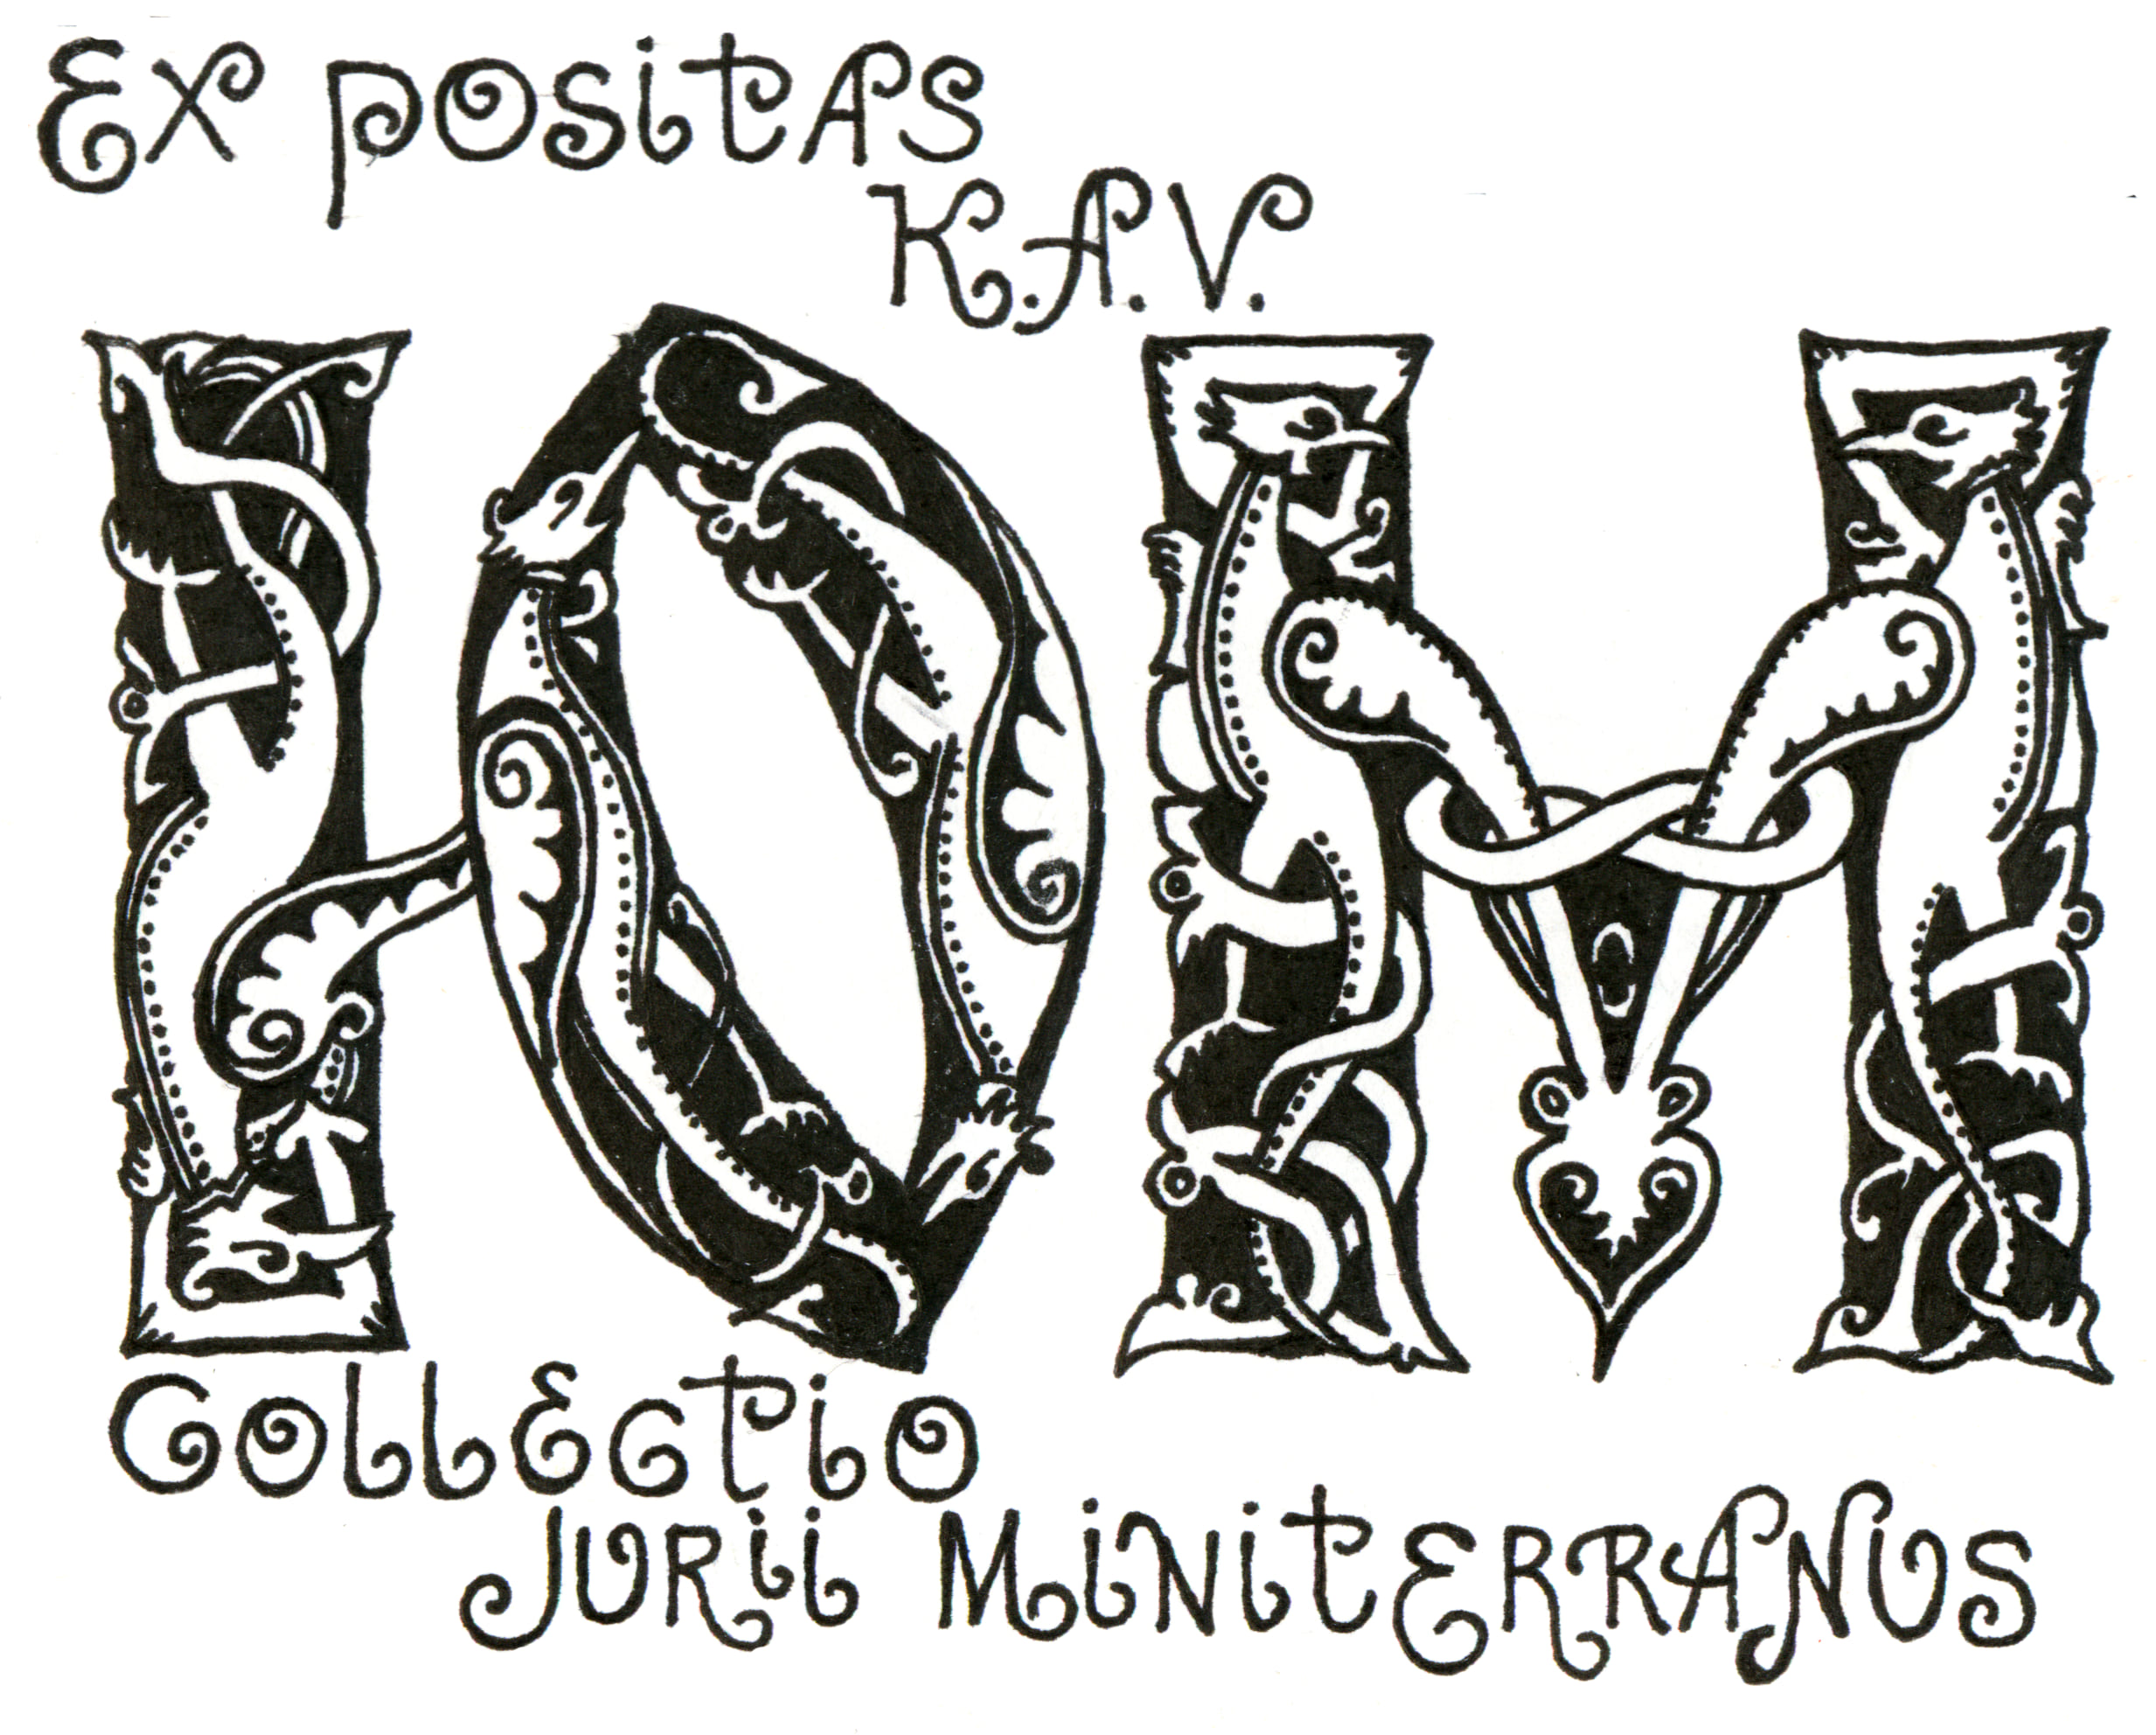 Ex positas
K.A.V.
ЮМ
Collectio
Jurii Miniterranus